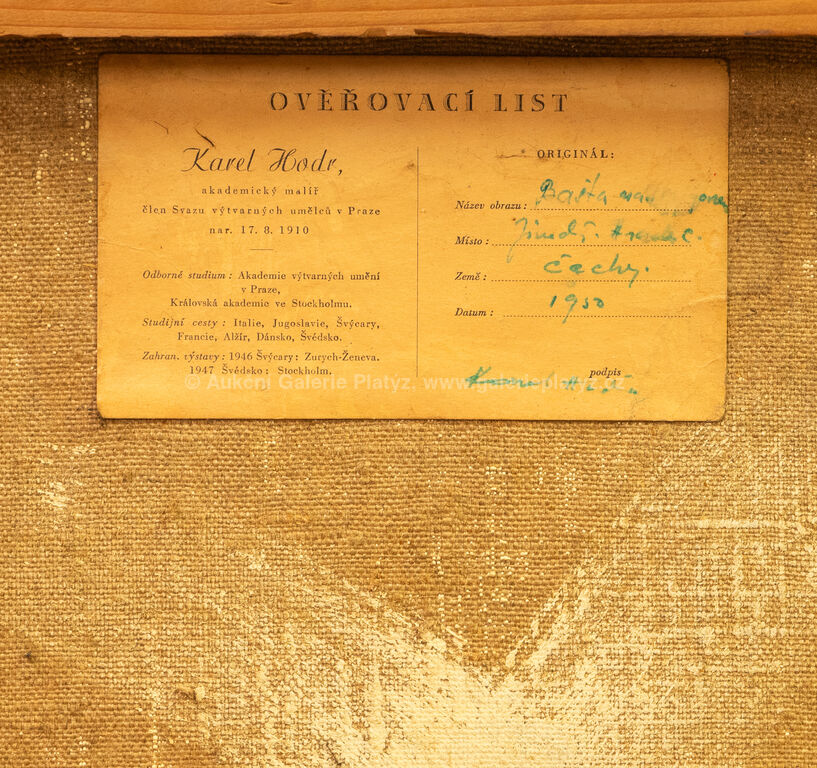 OVĚŘOVACÍ LIST
Karel Hodr,
akademický malíř
člen Svazu výtvarných umělců v Praze
nar. 17. 8. 1910
Odborné studium : Akademie výtvarných umění
v Praze,
Královská akademie ve Stockholmu.
Studijní cesty : Italie, Jugoslavie, Švýcary,
Francie, Alžír, Dánsko, Švédsko.
Zahran. výstavy : 1946 Švýcary : Zurych-Ženeva.
1947 Švédsko : Stockholm.
ORIGINÁL :
Název obrazu : Bašta nad
Místo : Jindř. Hradec.
Země : Čechy.
Datum : 1950
podpis
© Aukční Galerie Platýz, www.galerieplatyz.cz